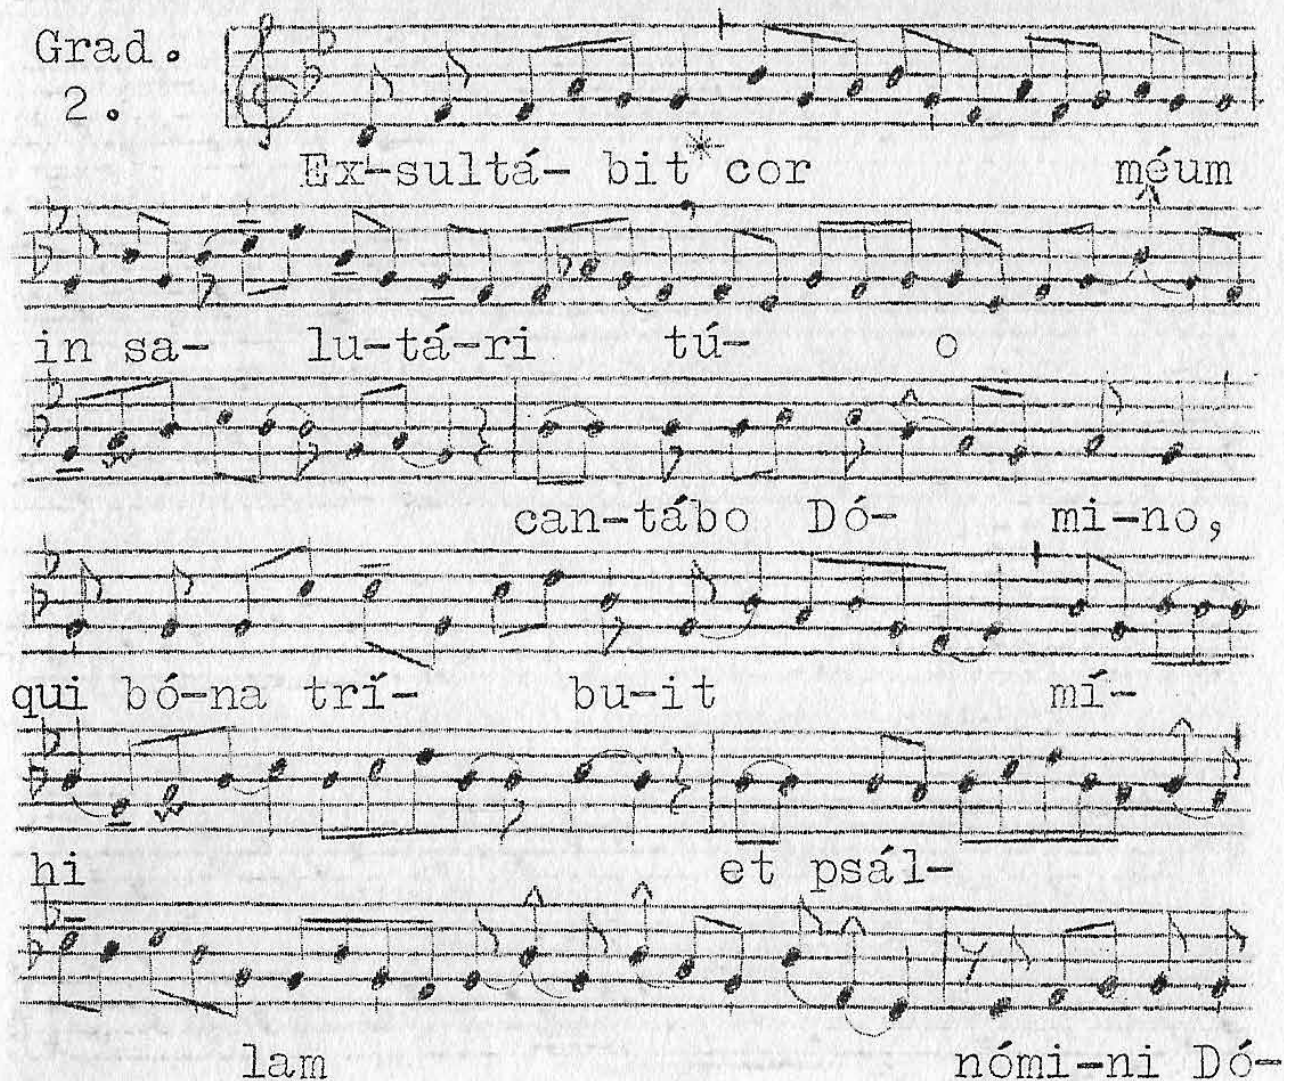 Grad.
2.
Ex-sultá- bit * cor méum
in sa- lu-tá-ri tú- o
can-tábo Dó- mi-no,
qui bó-na trí- bu-it mí-
hi et psál-
lam nómi-ni Dó-